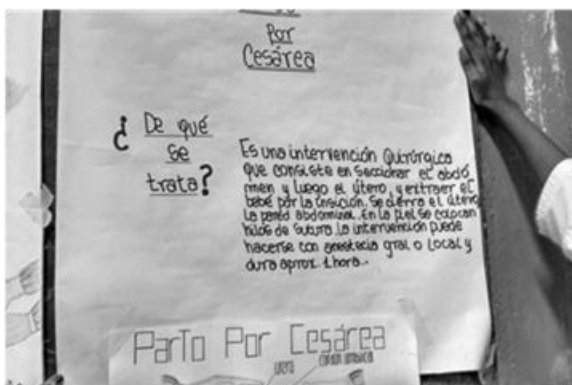 Por
Cesárea
¿ De qué
se
trata?
Es una intervención Quirúrgica
que consiste en seccionar el abdó
men y luego el útero, y extraer el
bebé por la insición. Se cierra el útero
la pared abdominal. En la piel se colocan
hilos de sutura. la intervención puede
hacerse con anestecia gral o Local y
dura aprox. 1 hora.
Parto Por Cesárea
útero
cordón umbilical